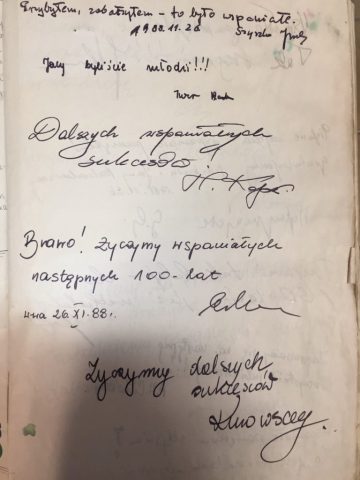 Przybyłem, zobaczyłem - to było wspaniałe.
1988.11.26
Jacy byliście młodzi!!!
Dalszych wspaniałych
sukcesów!
Brawo! Życzymy wspaniałych
następnych 100-lat
26.XI.88r.
Życzymy dalszych
sukcesów